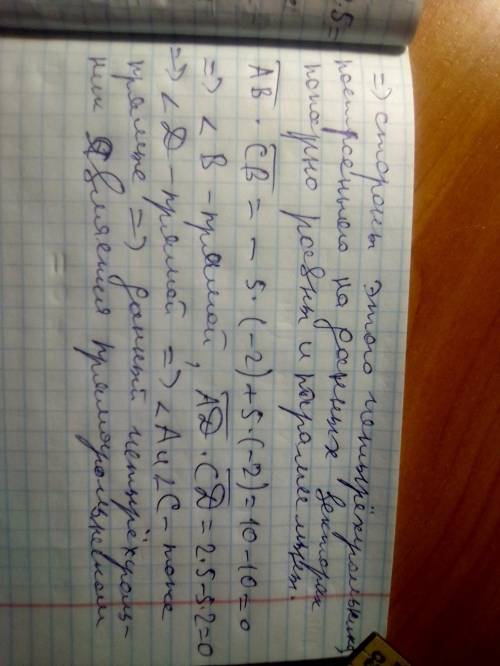 2.5=
=> стороны этого четырёхугольника,
построенного на данных векторах
попарно равны и параллельны.
AB · CB = -5·(-2)+5·(-2)=10-10=0
=> ∠B - прямой, AD · CD = 2·5-5·2=0
=> ∠D - прямой => ∠A и ∠C - тоже
прямые => данный четырёхуголь-
ник является прямоугольником